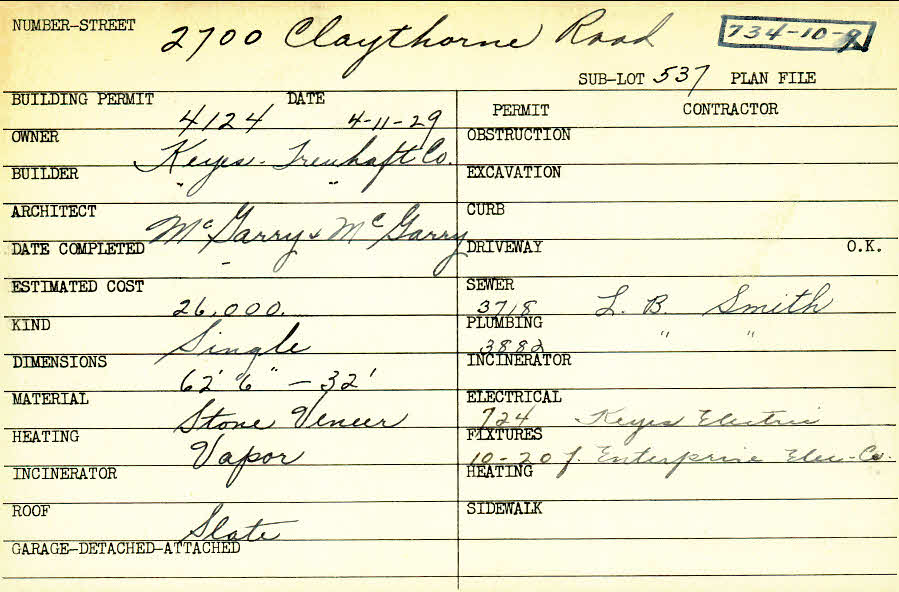 NUMBER-STREET 2700 Claythorne Road 734-10-9
SUB-LOT 537 PLAN FILE
BUILDING PERMIT 4124 DATE 4-11-29
PERMIT CONTRACTOR
OWNER Keyes-Treuhaft Co.
OBSTRUCTION
BUILDER " "
EXCAVATION
ARCHITECT McGarry & McGarry
CURB
DATE COMPLETED -
DRIVEWAY O.K.
ESTIMATED COST 26,000.
SEWER 3718 L. B. Smith
KIND Single
PLUMBING 3882 " "
DIMENSIONS 62' 6" - 32'
INCINERATOR
MATERIAL Stone Veneer
ELECTRICAL 724 Keyes Electric
HEATING Vapor
FIXTURES 10-20 f. Enterprise Elec. Co.
INCINERATOR
HEATING
ROOF Slate
SIDEWALK
GARAGE-DETACHED-ATTACHED